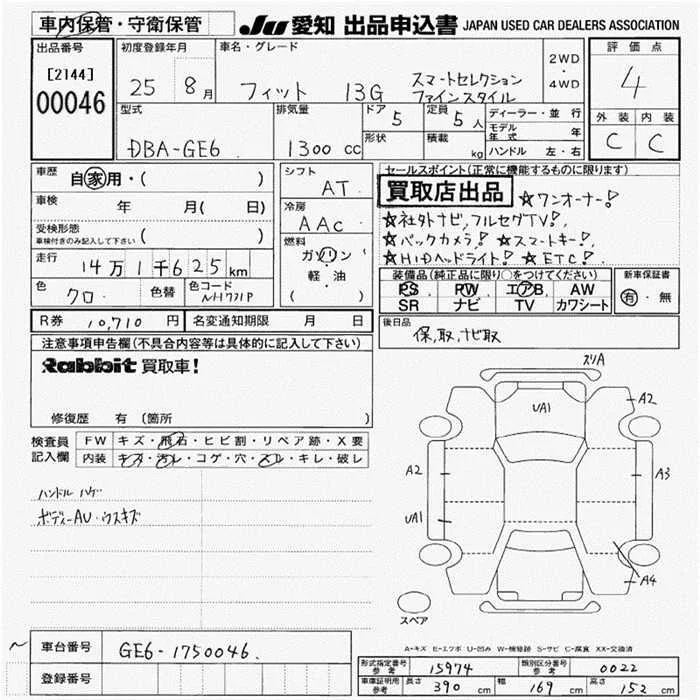 車内保管・守衛保管
JU 愛知 出品申込書 JAPAN USED CAR DEALERS ASSOCIATION
出品番号
[2144]
00046
初度登録年月
25 8月
車名・グレード
フィット 13G スマートセレクション
ファインスタイル
2WD
・
4WD
評価点
4
外装 内装
C C
型式
DBA-GE6
排気量
1300 cc
ドア 5
定員 5人
形状
積載 kg
ディーラー・並行
モデル年式 年
ハンドル 左・右
車歴 自家用・( )
車検 年 月( 日)
受検形態
車検付きのみ記入して下さい ( )
走行 14万1千625km
色 クロ 色替 色コード NH731P
シフト
AT
冷房
AAC
燃料
ガソリン
軽・油
( )
セールスポイント(正常に機能するものに限ります)
買取店出品 ☆ワンオーナー!
☆社外ナビ,フルセグTV!,
☆バックカメラ! ☆スマートキー!
☆HIDヘッドライト! ☆ETC!
装備品(純正品に限り○をつけてください)
PS PW エアB AW
SR ナビ TV カワシート
新車保証書
有・無
R券 10,710円 名変通知期限 月 日
後日品
保,取,ナビ取
注意事項申告欄(不具合内容等は具体的に記入して下さい)
Rabbit 買取車!
修復歴 有 (箇所 )
検査員
記入欄
FW キズ・飛石・ヒビ割・リペア跡・X要
内装 キズ・汚レ・コゲ・穴・スレ・キレ・破レ
ハンドル ハゲ
ボディーAU・ウスキズ
スリA
UA1
A2
A2
A3
UA1
A4
スペア
A-キズ E-エクボ U-凹み W-補修跡 S-サビ C-腐食 XX-交換済
〜 車台番号 GE6-1750046.
登録番号
形式指定番号
参考 15974
類別区分番号
参考 0022
車庫証明用
参考 長さ 390 cm 幅 169 cm 高さ 152 cm